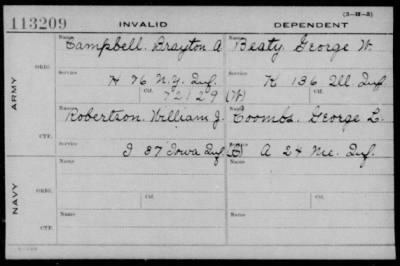 (3-III-3)
113209 INVALID DEPENDENT
Name Name
Campbell. Drayton A Beaty. George W.
ORIG.
Service Service
H 76 N.Y. Inf. K 136 Ill Inf
Ctf. 72129 (W) Ctf.
ARMY
Name Name
Robertson. William J. Coombs. George L.
CTF.
I 37 Iowa Inf. A 24 Me. Inf.
Name Name
NAVY
ORIG.
Service Service
Ctf. Ctf.
Name Name
CTF.